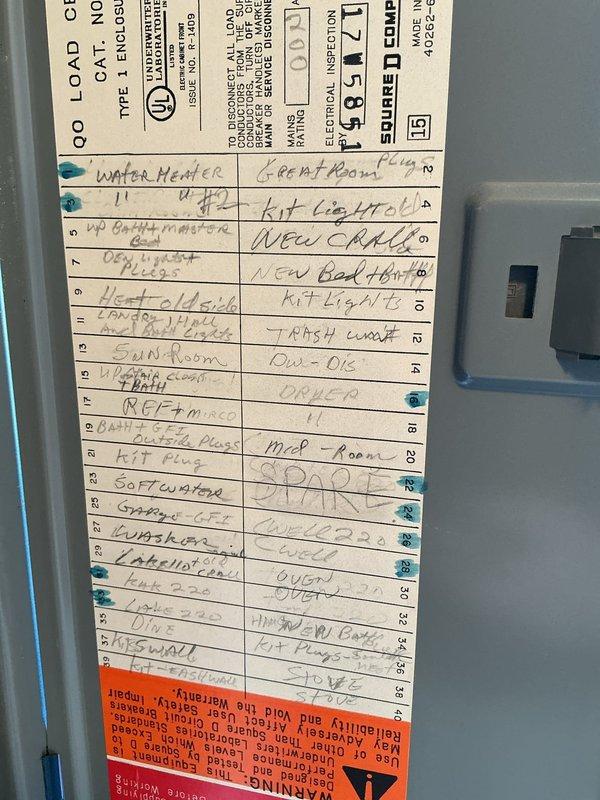 QO LOAD CE
CAT. NO
TYPE 1 ENCLOSU
UNDERWRITER
LABORATORIE
UL
LISTED
ELECTRIC CABINET FRONT
ISSUE NO. R-1409
TO DISCONNECT ALL LOAD
CONDUCTORS FROM THE SU
CONDUCTORS, TURN OFF CI
BREAKER HANDLE(S) MARKE
MAIN OR SERVICE DISCONNE
MAINS
RATING
ELECTRICAL INSPECTION
BY
SQUARE D COMP
MADE IN
40262-6
15
1 WATER HEATER
GREAT ROOM Plugs 2
3 " " #2
Kit Light old 4
5 UP BATH + MASTER Bed
NEW CRALL 6
7 DEN Lights + Plugs
NEW Bed + BATH 8
9 Heat old side
Kit Lights 10
11 LANDRY Hall And BATH Lights
TRASH 12
13 SUN ROOM
DW-DIS 14
15 UPSTAIR + BATH
DRYER 16
17 REF + MIRCO
" 18
19 BATH + GFI OUTSIDE Plugs
Mid-Room 20
21 Kit Plug
SPARE 22
23 SOFTWATER
24
25 GARGE-GFI
CWELL 220 26
27 WASKER
CWELL 28
29 old CRALL
OVEN 30
31 220
OVEN 220 32
33 LAKE 220
NEW BATH 34
35 DINE
Kit Plugs 36
37
STOVE 38
39 Kit-EASHWALL
STOVE 40
WARNING: This Equipment is
Designed and Tested by Square D to
Performance Levels Which Exceed
Underwriters Laboratories Standards.
Use of Other Than Square D Circuit Breakers
May Adversely Affect User Safety, Impair
Reliability and Void the Warranty.
Before Working